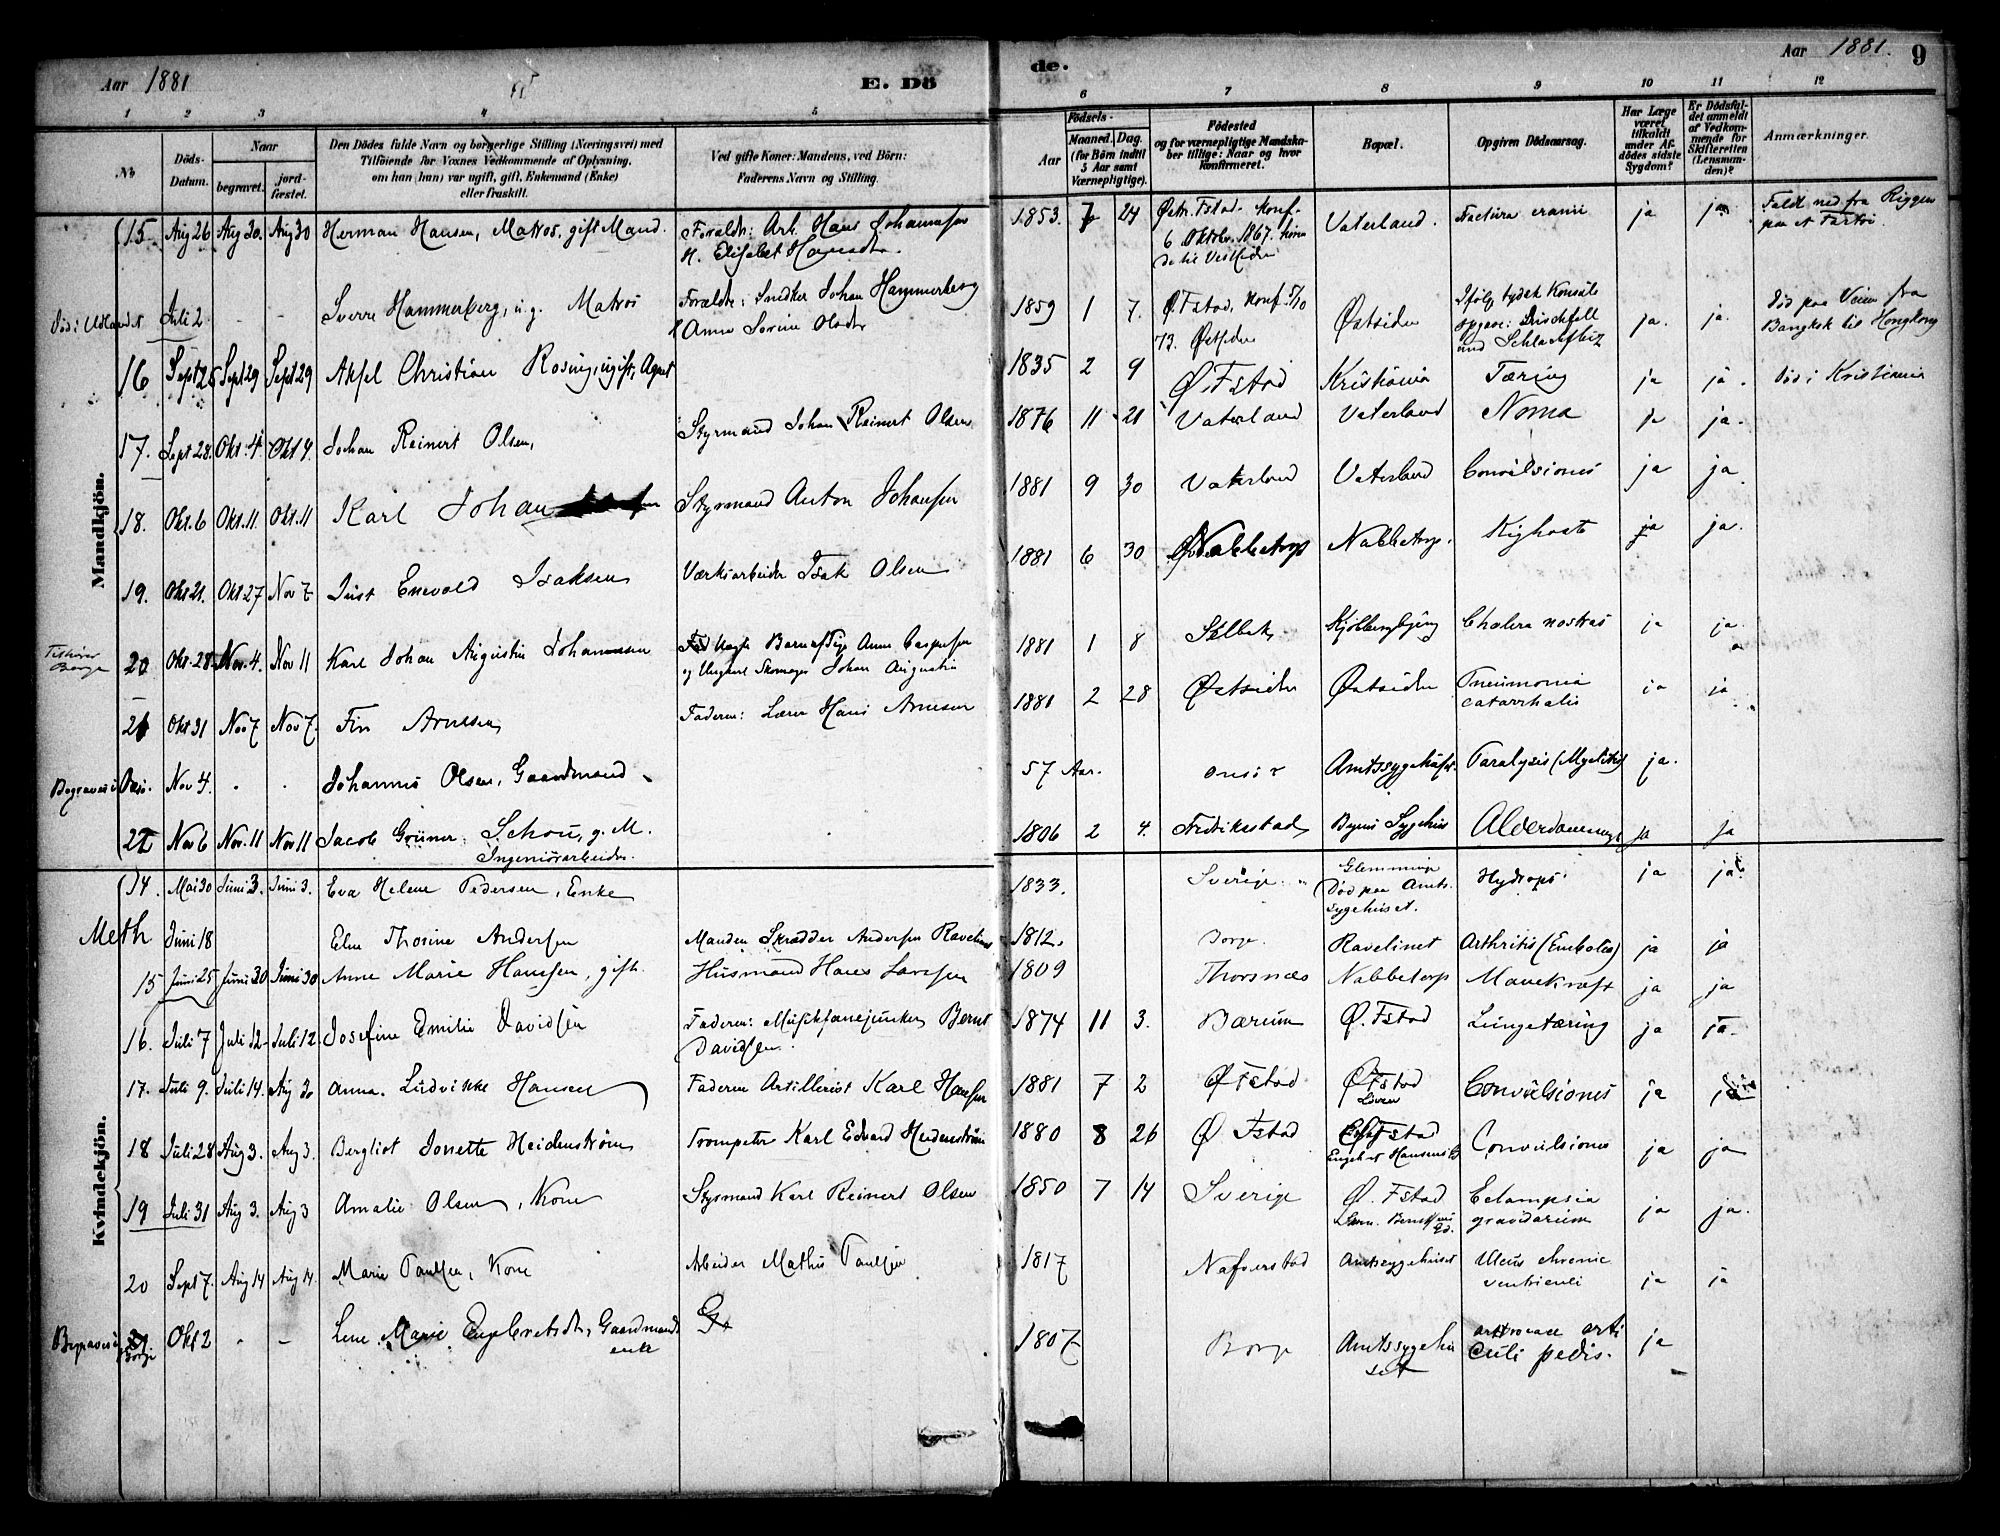 Aar 1881
E. Dö
de.
Aar 1881.
9
1 2 3 4 5 6 7 8 9 10 11 12
№
Döds-Datum.
Naar
begravet.
jordfæstet.
Den Dödes fulde Navn og borgerlige Stilling (Næringsvei) med
Tilföiende for Voxnes Vedkommende af Oplysning,
om han (hun) var ugift, gift, Enkemand (Enke)
eller fraskilt.
Ved gifte Koner: Mandens, ved Börn:
Faderens Navn og Stilling.
Födsels-
Aar
Maaned. Dag.
(for Börn indtil
5 Aar samt
Værnepligtige).
Födested
og for værnepligtige Mandskaber tillige: Naar og hvor
Konfirmeret.
Bopæl.
Opgiven Dödsaarsag.
Har Læge
været
tilkaldt
under Afdödes sidste
Sygdom?
Er Dödsfaldet anmeldt
af Vedkommende for
Skifteretten
(Lensmanden)?
Anmærkninger.
Mandkjön.
15. Aug 26 Aug 30. Aug 30 Herman Hansen, Matros, gift Mand. Foraldr: Arb. Hans Johannesen 1853. 7 24 Østr. Fstad. Konf. Vaterland. Factura cranii ja ja Faldt ned fra Riggen
H. Elisabet Hansdtr. 6 Oktbr. 1867. paa et Fartøi.
Død i Udlandet Juli 2 - - Sverre Hammerberg, u.g. Matros Forældr: Snedker Johan Hammerberg 1859 1 7. Ø. Fstad, Konf. 5/10 Østsiden Ifølg. tydsk Konsuls ja. ja. Død paa Veien fra
Anne Sorine Olsdtr 73. Østsiden opgave: Bangkok til Hongkong
16 Sept 25 Sept 29 Sept 29 Axel Christian Rosing, ugift, Agent 1835 2 9 Ø. Fstad Kristiania Tæring ja ja. Død i Kristiania
17. Sept 28. Okt. 4. Okt 4. Johan Reinert Olsen, Styrmand Johan Reinert Olsen 1876 11 21 Vaterland Vaterland Noma ja ja.
18. Okt. 6 Okt. 11. Okt. 11 Karl Johan Styrmand Anton Johansen 1881 9 30 Vaterland Vaterland Convulsiones ja ja.
19. Okt 21. Okt 27 Nov 7 Just Enevold Isaksen Værksarbeider Isak Olsen 1881 6 30 Nabbetorp Nabbetorp. Kighoste ja ja.
Borge 20 Okt. 28. Nov. 4. Nov 11 Karl Johan Augustin Johannesen Ugifte Anne Caspersen 1881 1 8 Selbak Kjølbergbjerg Cholera nostras ja ja
og Ungkarl Skomager Johan Augustin
21 Okt 31 Nov 7 Nov 7. Fin Arnesen Faderen: Lærer Hans Arnesen 1881 2 28 Østsiden Østsiden Pneumonia ja ja
catarrhalis
Begravet i Onsø. Nov 4. - - Johannes Olsen, Gaardmand. 57 Aar. Onsø Amtssygehuset. Paralysis (Myelitis) ja.
22 Nov 6 Nov. 11 Nov 11 Jacob Grüner Schou, g. M. 1806 2 4. Fredrikstad Byens Sygehus Alderdomssvag ja ja
Ingeniörarbeider.
Kvindekjön.
14. Mai 30 Juni 3. Juni 3. Eva Helene Pedersen, Enke 1833. Sverige. Glemminge Hydrops ja ja
Død paa Amts-
sygehuset.
Meth Juni 18 Elen Thorine Andersen Manden Skrædder Andersen Ravelinet 1812. Borge. Ravelinet Arthritis (Embolia) ja ja
15 Juni 25 Juni 30 Juni 30 Anne Marie Hansen, gift. Husmand Hans Larssen 1809 Thorsnæs Nabbetorp Mavekræft ja ja
16. Juli 7 Juli 12 Juli 12 Josefine Emilie Davidsen Faderen: Bernt 1874 11 3. Bærum Ø. Fstad Lungetæring ja ja.
Davidsen.
17. Juli 9. Juli 14. Aug 30 Anna Ludvikke Hansen Faderen Artillerist Karl Hansen 1881 7 2 Ø Fstad Ø Fstad Convulsiones ja ja
18 Juli 28 Aug 3. Aug 3. Bergliot Jonette Heidenstrøm Trompeter Karl Edvard Heidenstrøm 1880 8 26 Ø Fstad Fstad Convulsiones ja ja
19 Juli 31 Aug 3. Aug 3 Amalie Olsen, Kone Styrmand Karl Reinert Olsen 1850 7 14 Sverige Ø. Fstad Eclampsia ja ja.
gravidarum
20 Sept 7. Aug 14 Aug 14. Marie Paulsen, Kone Arbeider Mathis Paulsen 1817 Amtssygehuset Ulcus chronic ja ja
ventriculi
Begravet i Borge Okt 2 - - Lene Marie Engebretsdtr, Gaardmands 1807 Borge Amtssygehu ja
enke set culi pedis.